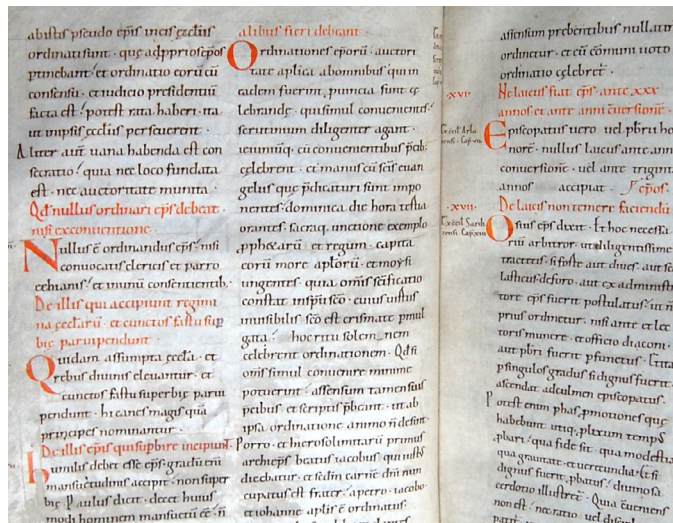 abistis pseudo epis incis ęcclesiis
ordinati sunt · quę ad pprios epos
ptinebant · et ordinatio eorū cū
consensu · et iudicio presidentiū
facta est · potest rata haberi · ita
ut in ipsis ęcclesiis perseuerent ·
Aliter aut uana habenda est con
secratio · quia nec loco fundata
est · nec auctoritate munita ·
Qd nullus ordinari eps debeat ·
nisi ex conuentione ·
Nullus ē ordinandus eps · nisi
conuocatis clericis et parro
echianis · et in unū consentientib ·
De illis qui accipiunt regimi
na ęcclarū · et cunctos fastu sup
bię paruipendunt ·
Quidam assumpta ęccla · et
rebus diuinis eleuantur · et
cunctos fastu superbię parui
pendunt · hi canes magis quā
principes nominantur ·
De illis epis qui supbire incipiunt ·
humilis debet esse eps · gradū enī
mansuetudinis accipit · non super
bię · Paulus dicit · decet huius
modi hominem mansuetū eē · n̄
alibus fieri debeant ·
Ordinationes eporū · auctori
tate aplica ab omnibus qui in
eadem fuerint puincia sunt cę
lebrandę · qui simul conuenientes
scrutinium diligenter agant ·
ieiuniūq · cū conuenientibus pcib ·
cęlebrent · et manus cū scis euan
gelus que pdicaturi sunt impo
nentes · dominica die hora tertia
orantes · sacraq · unctione exemplo
pphetarū · et regum · capita
eorū more aplorū · et moysi
ungentes · quia omis scificatio
constat in spu sco · cuius uirtus
inuisibilis sco est crismate pmul
gata · hoc ritu solem nem
celebrent ordinationem · Qd si
oms simul conuenire minime
potuerint · assensum tamen suis
pcibus et scriptis pbeant · ut ab
ipsa ordinatione animo n̄ desint ·
Porro · et hierosolimitarū primus
archieps beatus iacobus qui iustus
dicebatur · et sedm carnē dn̄i nun
cupatus est frater · a petro · iacobo ·
et iohanne aplis ē ordinatus ·
assensum prebentibus nullatin
ordinetur · et cū cōmuni uoto
ordinatio cęlebret ·
·XVI·
Ne laicus fiat eps · ante xxx
annos et ante anni cuersionē ·
Episcopatus uero · uel pbrii ho
norē · nullus laicus ante anni
conuersionē · uel ante triginta
annos accipiat · epos ·
·XVII·
De laicis non temere faciendū
Osius eps dixit · Et hoc necessa
riū arbitror · ut diligentissime
tractetis · si forte aut diues · aut sco
lasticus de foro · aut ex administra
tore eps fuerit postulatus · ut n̄
prius ordinetur · nisi ante et lec
toris munere · et officio diaconi ·
aut pbri fuerit pfunctus · Et ita
p singulos gradus si dignus fuerit
ascendat ad culmen episcopatus ·
Potest enim p has pmotiones quę
habebunt utiq · plixum temps
pbari · qua fide sit · qua modestia
qua grauitate · et uerecundia · Et si
dignus fuerit pbatus · diuino sa
cerdotio illustret · Quia cueniens
non est · nec ratio uel